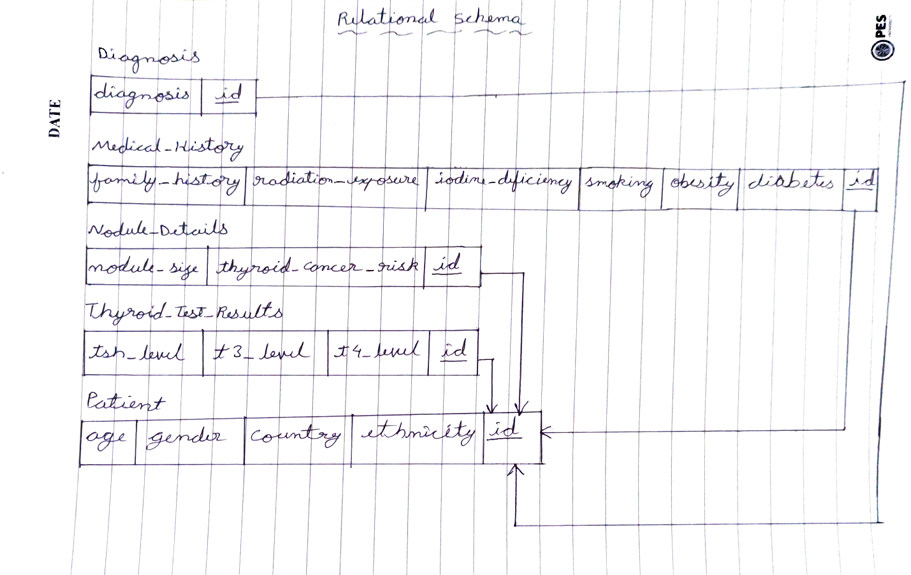 Relational Schema
PES
DATE
Diagnosis
diagnosis id
Medical_History
family_history radiation_exposure iodine_dificiency smoking obesity diabetes id
Nodule_Details
nodule_size thyroid_cancer_risk id
Thyroid_Test_Results
tsh_level t3_level t4_level id
Patient
age gender country ethnicity id